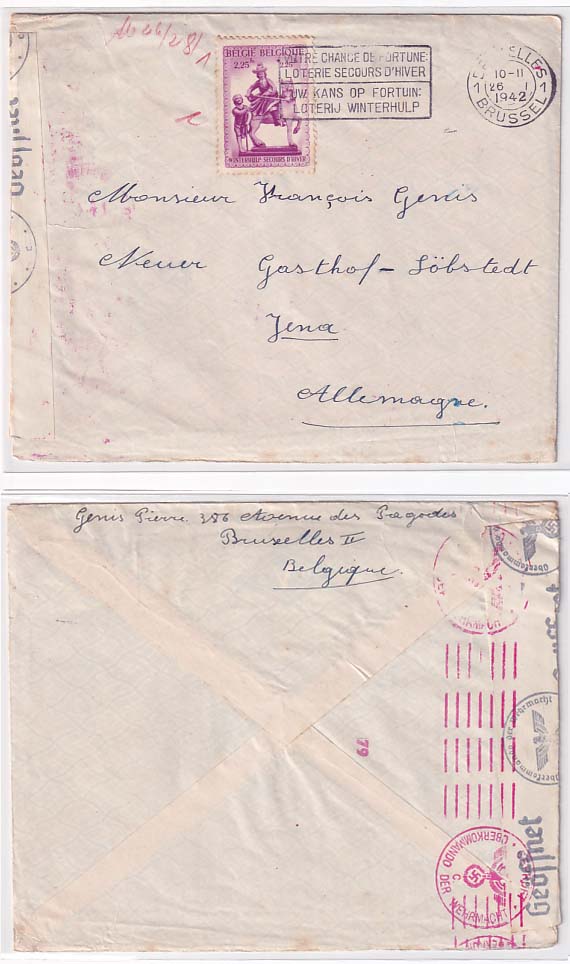 Geöffnet
BELGIE BELGIQUE
2.25
WINTERHULP-SECOURS D'HIVER
VOTRE CHANCE DE FORTUNE:
LOTERIE SECOURS D'HIVER
UW KANS OP FORTUIN:
LOTERIJ WINTERHULP
BRUXELLES
1 10-11 1
26 I
1942
BRUSSEL
Monsieur François Genis
Neuer Gasthof-Löbstedt
Jena
Allemagne.
Genis Pierre. 356 Avenue des Pagodes
Bruxelles II
Belgique.
Oberkommando der Wehrmacht
79
OBERKOMMANDO DER WEHRMACHT
C
Geöffnet